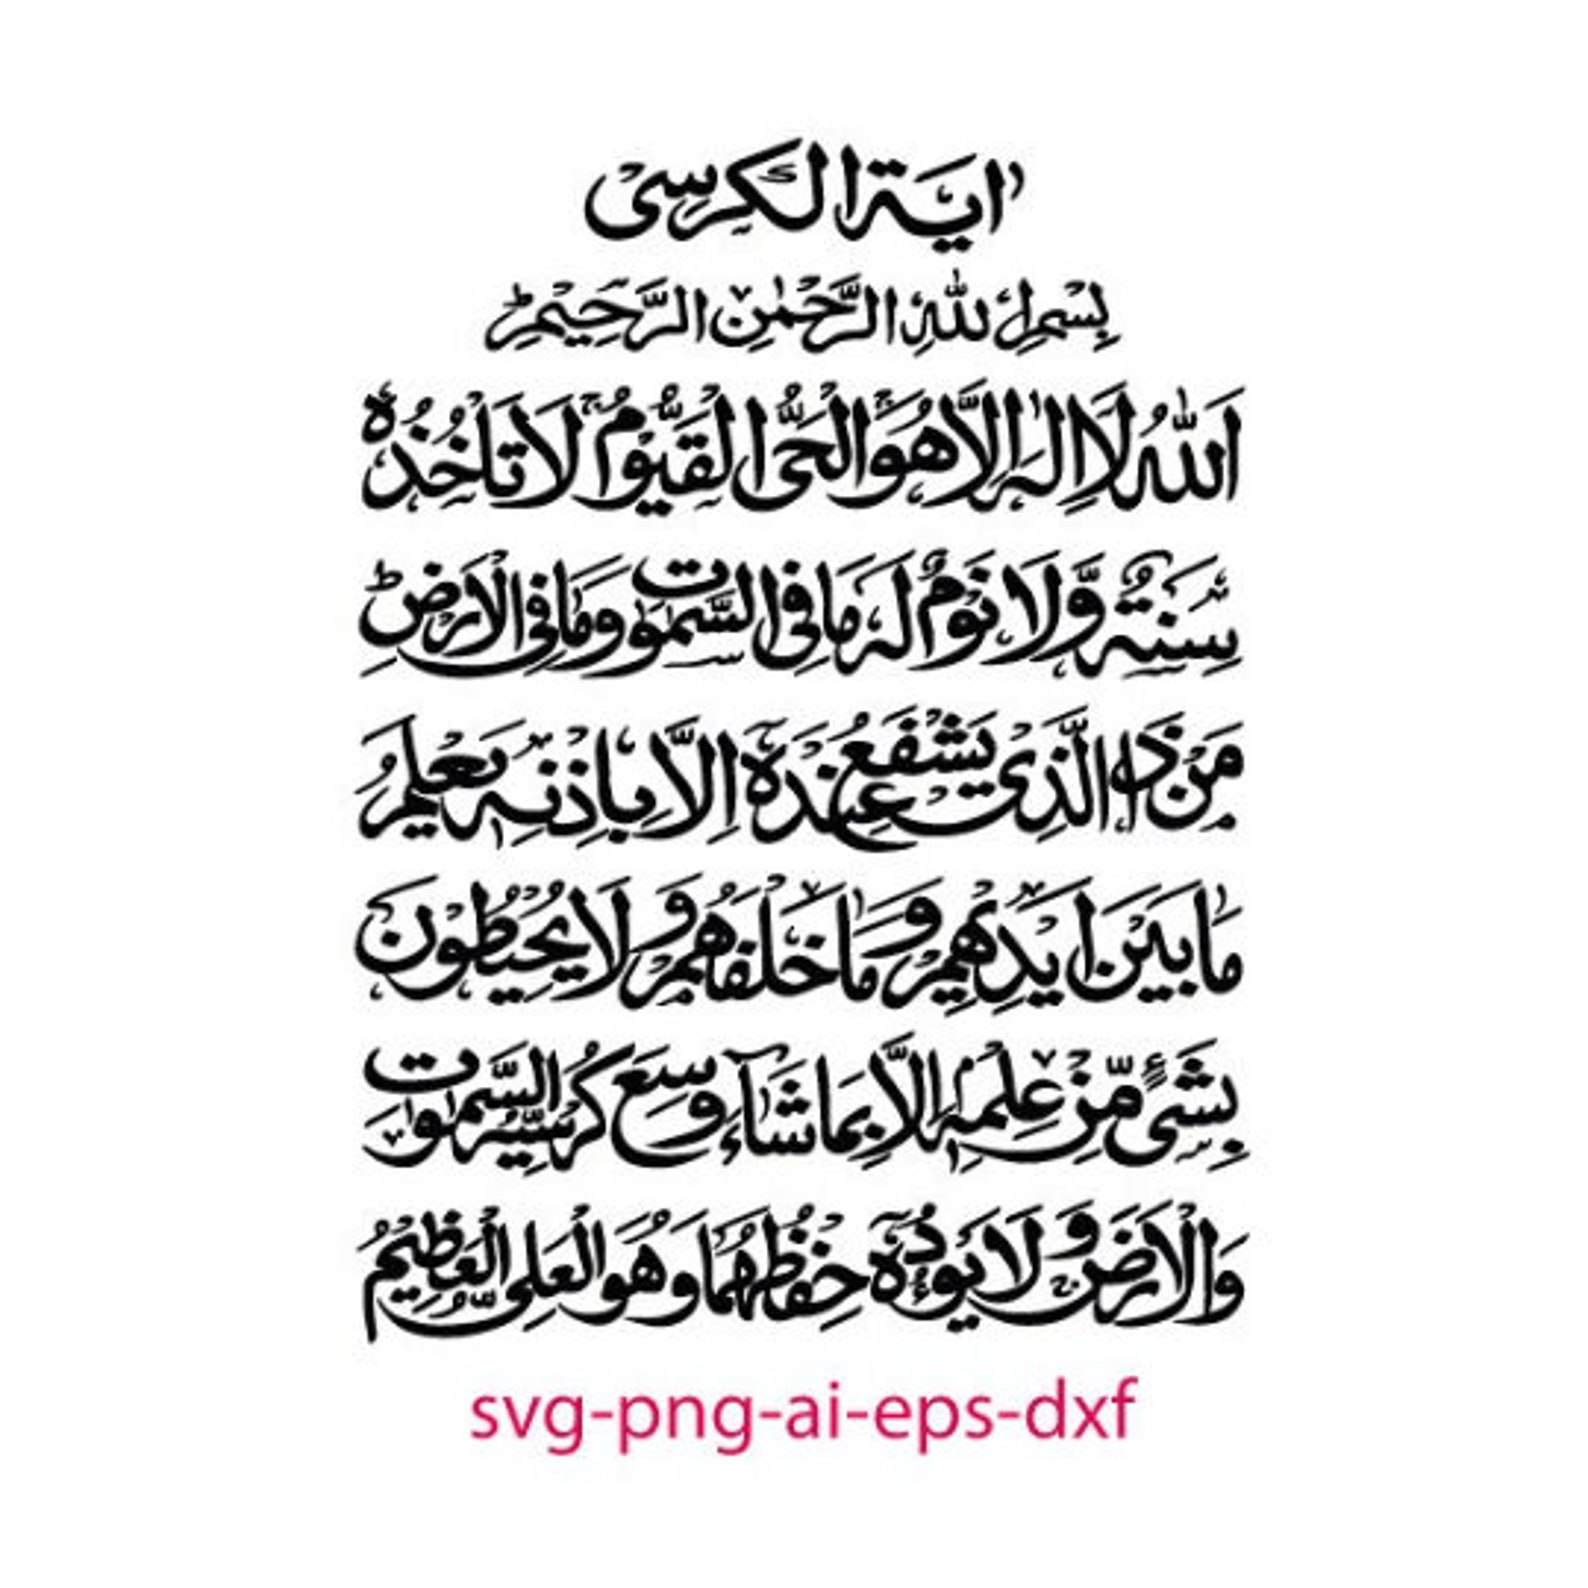 اٰية الكرسى
بِسْمِ اللّٰهِ الرَّحْمٰنِ الرَّحِيْمِ ؕ
اَللّٰهُ لَاۤ اِلٰهَ اِلَّا هُوَ ۚ اَلْحَىُّ الْقَيُّوْمُ ۚ لَا تَاْخُذُهٗ
سِنَةٌ وَّلَا نَوْمٌ لَهٗ مَا فِى السَّمٰوٰتِ وَمَا فِى الْاَرْضِ ؕ
مَنْ ذَا الَّذِىْ يَشْفَعُ عِنْدَهٗۤ اِلَّا بِاِذْنِهٖ يَعْلَمُ
مَا بَيْنَ اَيْدِيْهِمْ وَمَا خَلْفَهُمْ وَلَا يُحِيْطُوْنَ
بِشَىْءٍ مِّنْ عِلْمِهٖۤ اِلَّا بِمَا شَآءَ وَسِعَ كُرْسِيُّهُ السَّمٰوٰتِ
وَالْاَرْضَ وَلَا يَـُٔوْدُهٗ حِفْظُهُمَا وَهُوَ الْعَلِىُّ الْعَظِيْمُ
svg-png-ai-eps-dxf